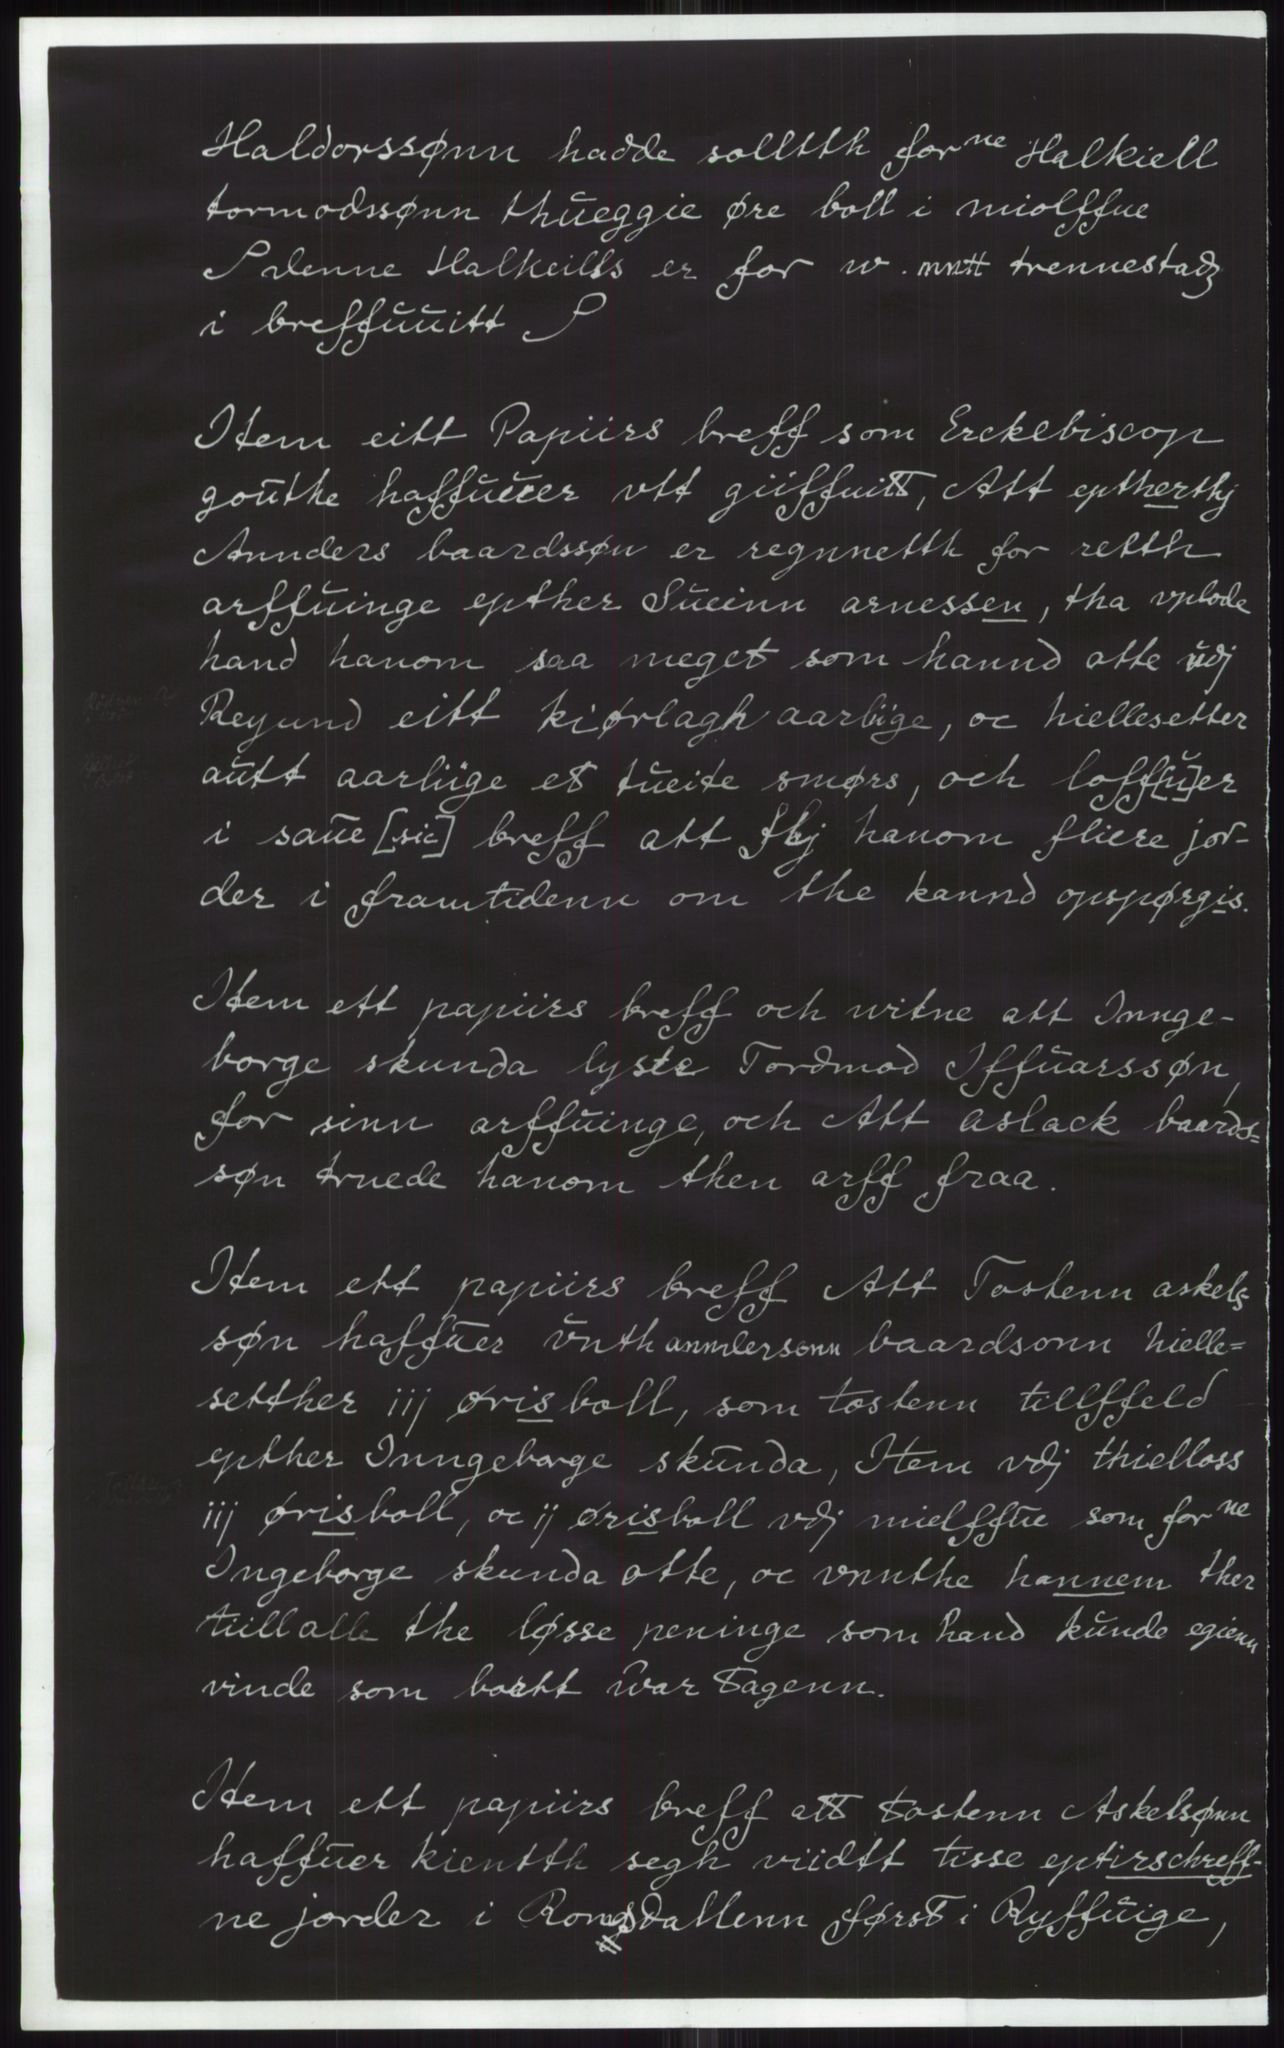 Haldorssønn hadde solltth forne Halkiell
tormodssønn thueggie øre boll i miolffue
S denne Halkeills er for w. mntt trennestadz
i breffuuitt S
Item eitt Papiirs breff som Erckebiscop
gouthe haffuuer vtt giiffuitt, Att epttherthj
Annders baardssøn er regnnetth for retth
arffuinge epther Sueinn arnessen, tha vplode
hand hanom saa meget som hannd otte udj
Reyund eitt kiørlagh aarliige, oc hiellesetter
autt aarliige et tueite smørs, och loff[u]er
i saue [sic] breff att fhj hanom fliere jor-
der i framtidenn om the kannd opspørgis.
Item ett papiirs breff och witne att Innge-
borge skunda lyste Tordmod Iffuarssøn,
for sinn arffuinge, och Att aslack baards=
søn truede hanom then arff fraa.
Item ett papiirs breff Att Tostenn askels
søn haffuer vnth anndersonn baardsonn hielle=
setther iij øris boll, som tostenn tillffeld
epther Inngeborge skunda, Item vdj thielloss
iij øris boll, oc ij øris boll vdj mielffue som forne
Ingeborge skunda otte, oc vnnthe hannem ther
tiill alle the løsse peninge som hand kunde egienn
vinde som bortt war tagenn.
Item ett papiirs breff att tostenn Askelsønn
haffuer kientth segh viidtt tisse eptirschreff-
ne jorder i Romsdallenn først i Ryffuige,